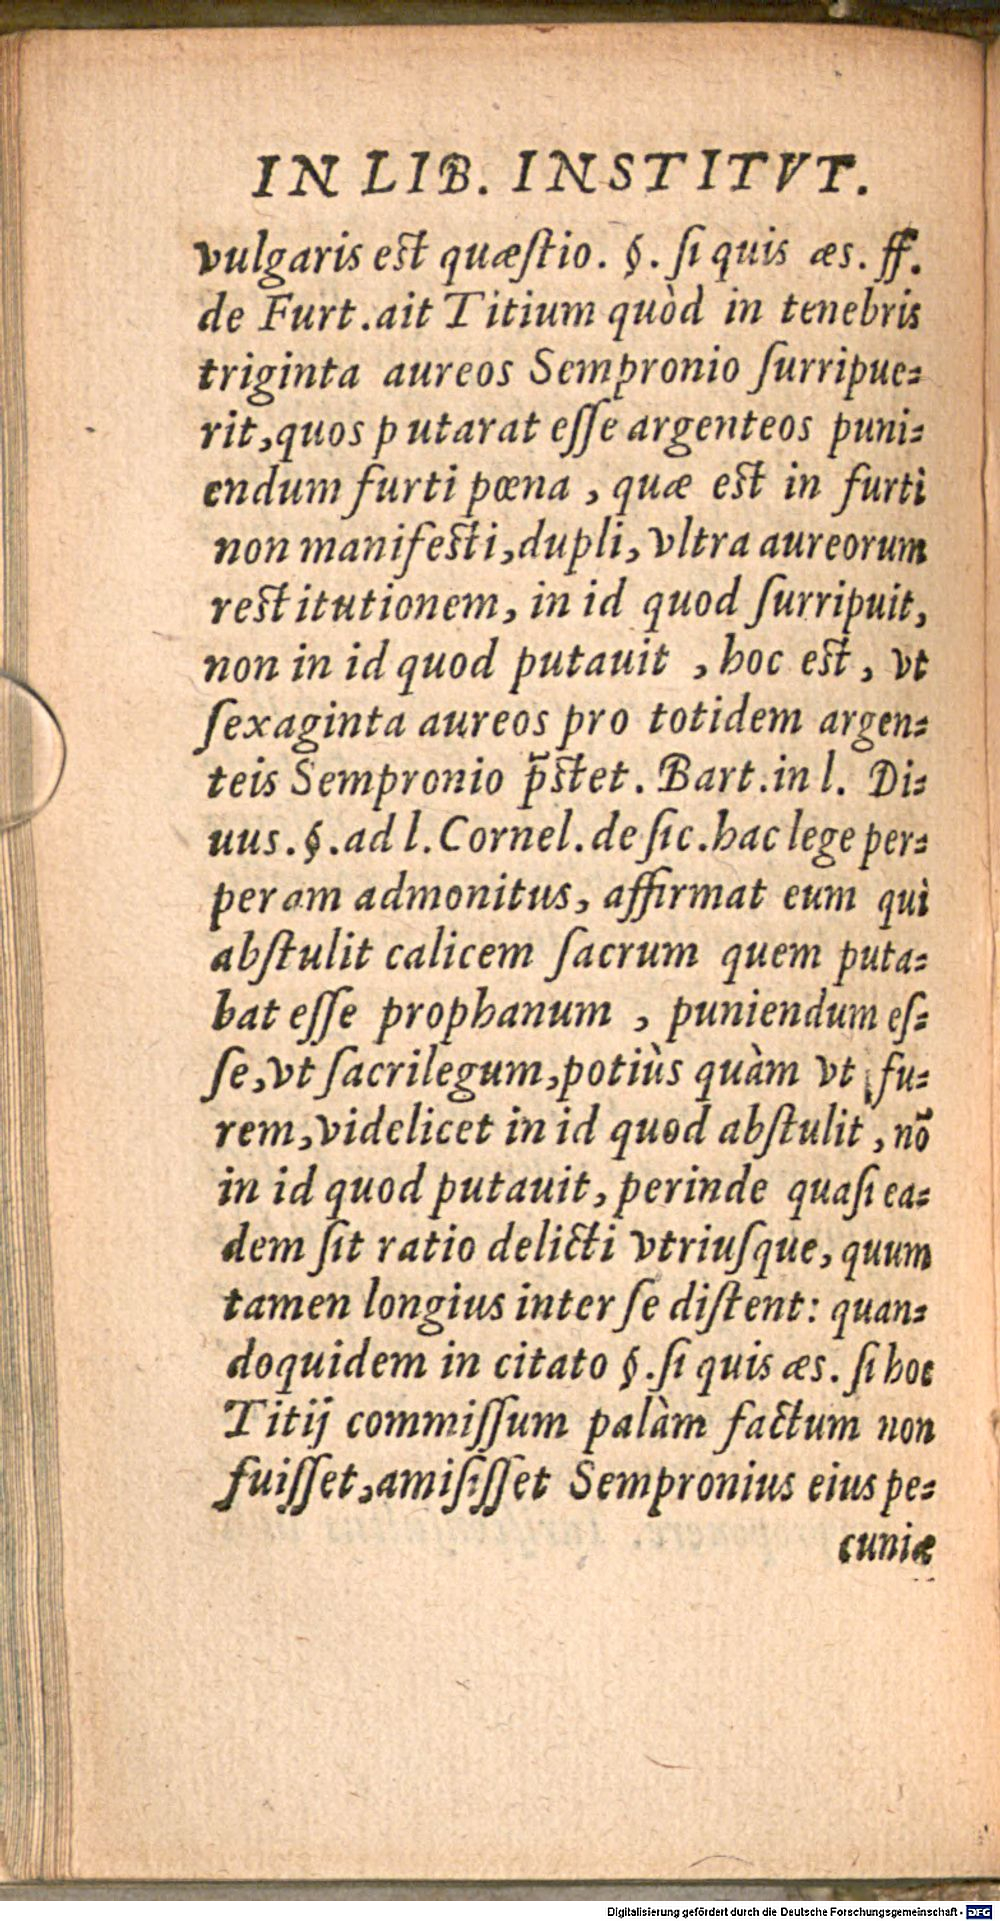 IN LIB. INSTITVT.
vulgaris est quæſtio. §. ſi quis æs. ff.
de Furt. ait Titium quòd in tenebris
triginta aureos Sempronio ſurripue=
rit, quos putarat eſſe argenteos puni=
endum furti pœna, quæ est in furti
non manifesti, dupli, vltra aureorum
restitutionem, in id quod ſurripuit,
non in id quod putauit, hoc est, vt
ſexaginta aureos pro totidem argen=
teis Sempronio p̃stet. Bart. in l. Di=
uus. §. ad l. Cornel. de ſic. hac lege per=
peram admonitus, affirmat eum qui
abſtulit calicem ſacrum quem puta=
bat eſſe prophanum, puniendum eſ=
ſe, vt ſacrilegum, potiùs quàm vt fu=
rem, videlicet in id quod abſtulit, nõ
in id quod putauit, perinde quaſi ea=
dem ſit ratio delicti vtriuſque, quum
tamen longius inter ſe diſtent: quan=
doquidem in citato §. ſi quis æs. ſi hoc
Titij commiſſum palàm factum non
fuiſſet, amiſiſſet Sempronius eius pe=
cuniæ
Digitalisierung gefördert durch die Deutsche Forschungsgemeinschaft - DFG